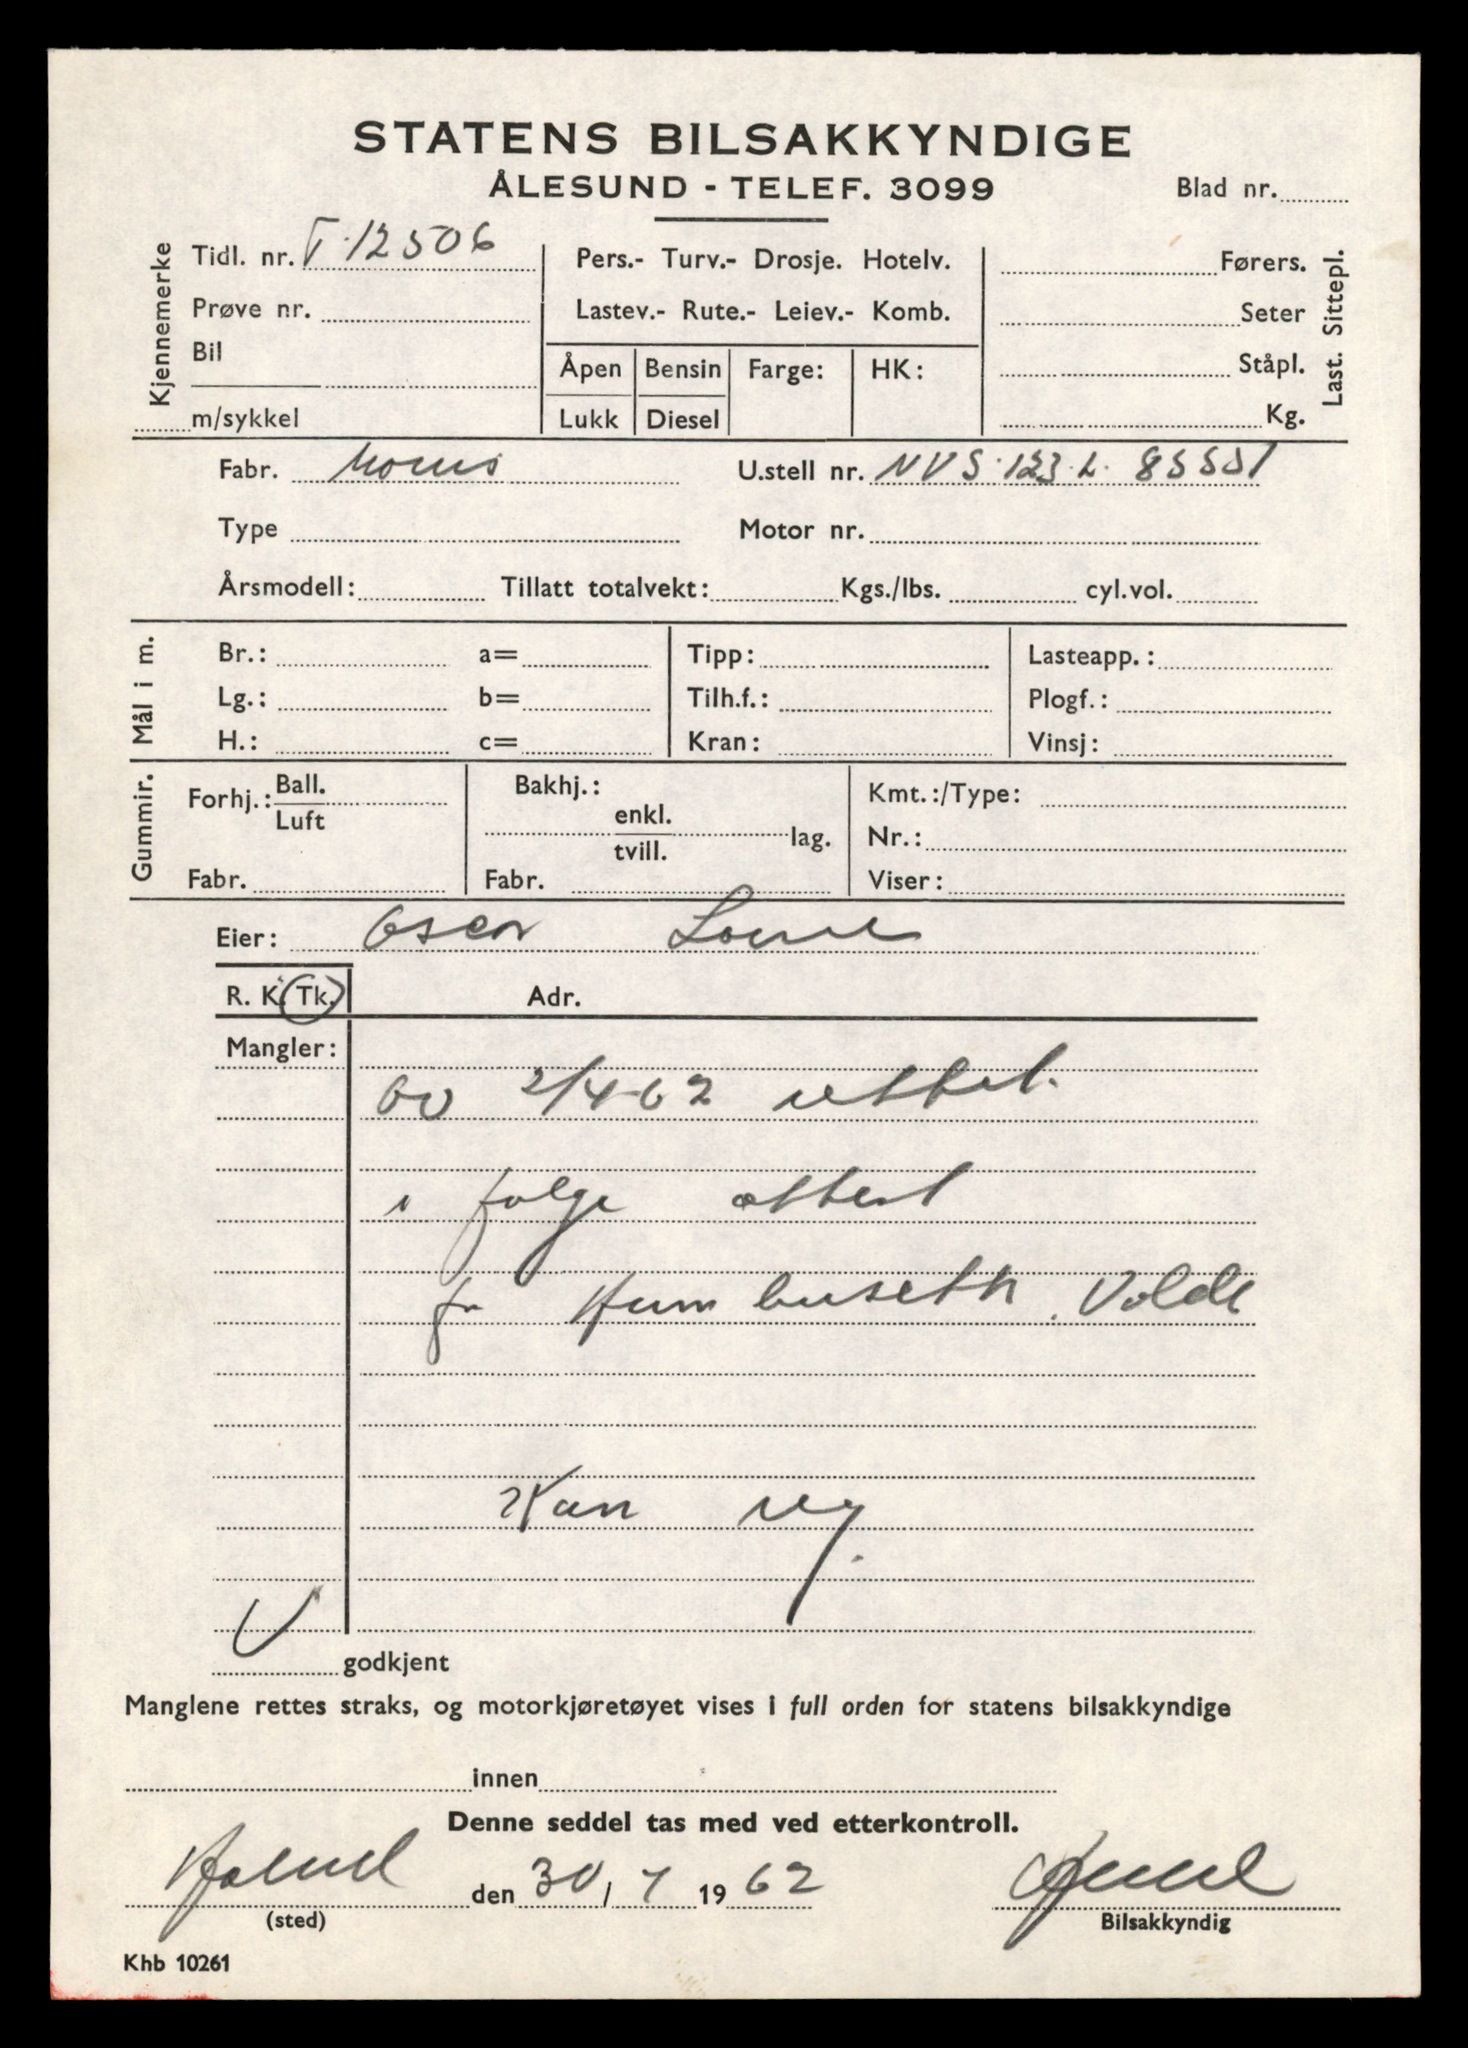 STATENS BILSAKKYNDIGE
ÅLESUND - TELEF. 3099
Blad nr.
Kjennemerke
Tidl. nr. T-12506
Prøve nr.
Bil
m/sykkel
Pers.- Turv.- Drosje. Hotelv.
Lastev.- Rute.- Leiev.- Komb.
Åpen Bensin Farge: HK:
Lukk Diesel
Førers.
Seter
Ståpl.
Kg.
Last. Sittepl.
Fabr. U.stell nr. NVS.123.L. 85551
Type Motor nr.
Årsmodell: Tillatt totalvekt: Kgs./lbs. cyl.vol.
Mål i m.
Br.: a= Tipp: Lasteapp.:
Lg.: b= Tilh.f.: Plogf.:
H.: c= Kran: Vinsj:
Gummir.
Forhj.: Ball.
Luft
Fabr.
Bakhj.:
enkl.
tvill. lag.
Fabr.
Kmt.:/Type:
Nr.:
Viser:
Eier: Oscar
R. K. Tk. Adr.
Mangler:
2/4-62 utbet.
i følge attest
fr Humbuseth. Volda
Kan ny.
godkjent
Manglene rettes straks, og motorkjøretøyet vises i full orden for statens bilsakkyndige
innen
Denne seddel tas med ved etterkontroll.
den 30/ 7 19 62
(sted) Bilsakkyndig
Khb 10261